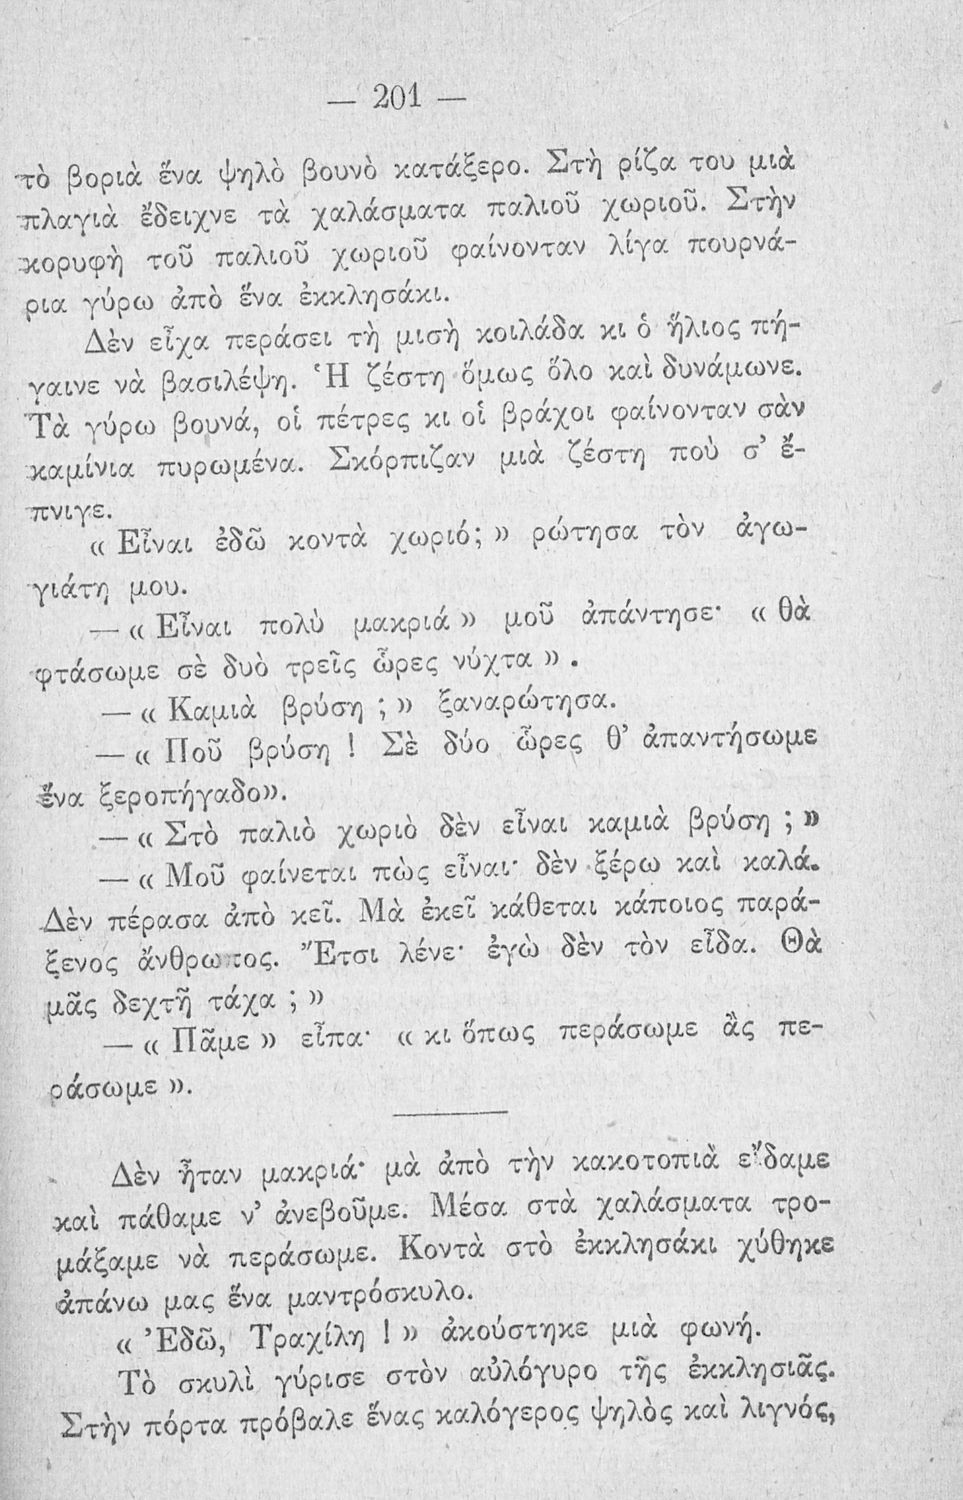 — 201 —
τὸ βοριὰ ἕνα ψηλὸ βουνὸ κατάξερο. Στὴ ρίζα του μιὰ
πλαγιὰ ἔδειχνε τὰ χαλάσματα παλιοῦ χωριοῦ. Στὴν
κορυφὴ τοῦ παλιοῦ χωριοῦ φαίνονταν λίγα πουρνά-
ρια γύρω ἀπὸ ἕνα ἐκκλησάκι.
Δὲν εἶχα περάσει τὴ μισὴ κοιλάδα κι ὁ ἥλιος πή-
γαινε νὰ βασιλέψῃ. Ἡ ζέστη ὅμως ὅλο καὶ δυνάμωνε.
Τὰ γύρω βουνά, οἱ πέτρες κι οἱ βράχοι φαίνονταν σὰν
καμίνια πυρωμένα. Σκόρπιζαν μιὰ ζέστη ποὺ σ’ ἔ-
πνιγε.
« Εἶναι ἐδῶ κοντὰ χωριό; » ρώτησα τὸν ἀγω-
γιάτη μου.
— « Εἶναι πολὺ μακριά » μοῦ ἀπάντησε· « θὰ
φτάσωμε σὲ δυὸ τρεῖς ὧρες νύχτα » .
— « Καμιὰ βρύση ; » ξαναρώτησα.
— « Ποῦ βρύση ! Σὲ δύο ὧρες θ’ ἀπαντήσωμε
ἕνα ξεροπήγαδο».
— « Στὸ παλιὸ χωριὸ δὲν εἶναι καμιὰ βρύση ; »
— « Μοῦ φαίνεται πὼς εἶναι· δὲν ξέρω καὶ καλά.
Δὲν πέρασα ἀπὸ κεῖ. Μὰ ἐκεῖ κάθεται κάποιος παρά-
ξενος ἄνθρωπος. Ἔτσι λένε· ἐγὼ δὲν τὸν εἶδα. Θὰ
μᾶς δεχτῇ τάχα ; »
— « Πᾶμε » εἶπα· « κι ὅπως περάσωμε ἂς πε-
ράσωμε ».
Δὲν ἦταν μακριά· μὰ ἀπὸ τὴν κακοτοπιὰ εἴδαμε
καὶ πάθαμε ν’ ἀνεβοῦμε. Μέσα στὰ χαλάσματα τρο-
μάξαμε νὰ περάσωμε. Κοντὰ στὸ ἐκκλησάκι χύθηκε
ἀπάνω μας ἕνα μαντρόσκυλο.
« Ἐδῶ, Τραχίλη ! » ἀκούστηκε μιὰ φωνή.
Τὸ σκυλὶ γύρισε στὸν αὐλόγυρο τῆς ἐκκλησιᾶς.
Στὴν πόρτα πρόβαλε ἕνας καλόγερος ψηλὸς καὶ λιγνός,